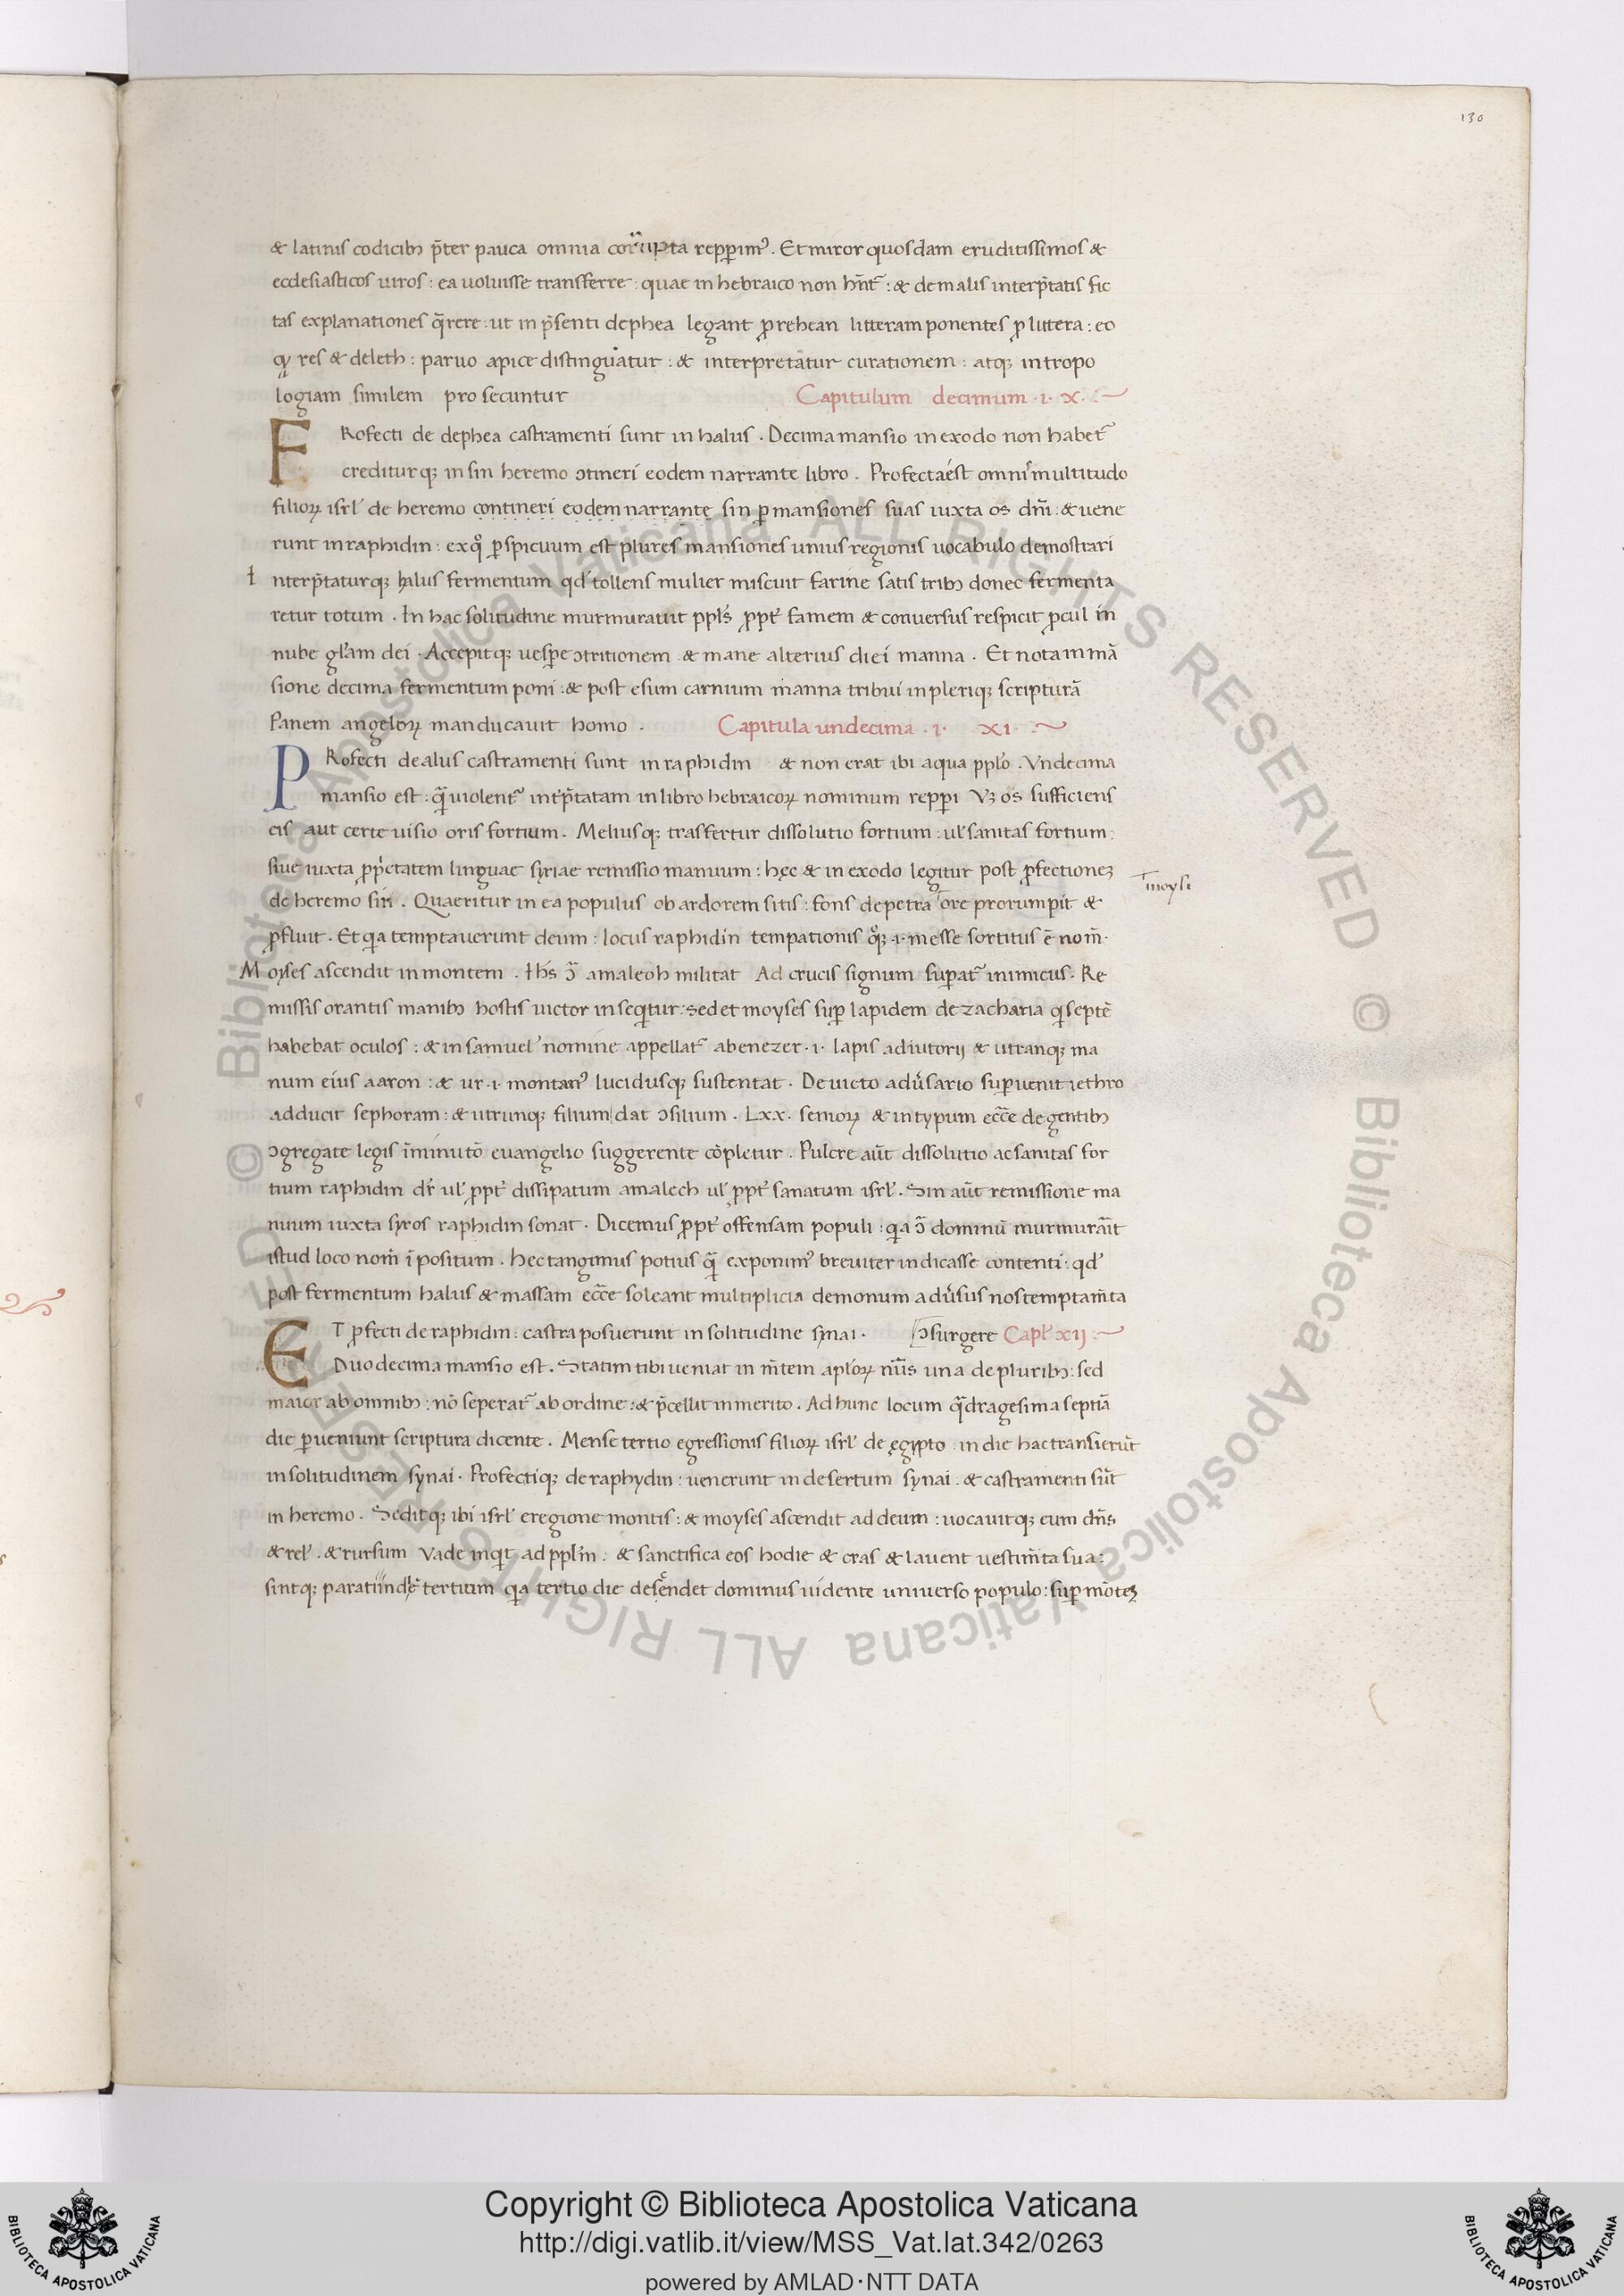 130
& latinis codicib; p̄ter pauca omnia corrupta repperim⁹. Et miror quosdam eruditissimos &
ecclesiasticos uiros : ea uoluisse transferre : quae in hebraico non hn̄t᷑ : & de malis interp̄tatis fic
tas explanationes q̄rere : ut in p̄senti dephea legant ꝓ rehean litteram ponentes ꝓ littera : eo
ꝙ res & deleth : paruo apice distinguatur : & interpretatur curationem : atq; in tropo
logiam similem pro secuntur Capitulum decimum .i. x.
F Rofecti de dephea castramenti sunt in halus . Decima mansio in exodo non habet᷑
creditur q; in sin heremo ↄtineri eodem narrante libro . Profecta ést omnis multitudo
filioꝝ isrl̓ de heremo contineri eodem narrante sin ꝑ mansiones suas iuxta os dn̄i : & uene
runt in raphidin : ex qͦ ꝑspicuum est plures mansiones unius regionis uocabulo demostrari
I nterp̄tatur q; halus fermentum qd̓ tollens mulier miscuit farine satis trib; donec fermenta
retur totum . In hac solitudine murmurauit ppl̓s ꝓpt̓ famem & conuersus respicit ꝓcul in
nube gl̓am dei . Accepit q; uesꝑe ↄtritionem & mane alterius diei manna . Et nota in mā
sione decima fermentum poni : & post esum carnium manna tribui inpleriq; scripturā
Panem angeloꝝ manducauit homo . Capitula undecima .i. xi
P Rofecti de alus castramenti sunt in raphidin & non erat ibi aqua ppl̓o . Vndecima
mansio est : quā uiolent᷑ int̓p̄tatam in libro hebraicoꝝ nominum repperi Vꝫ os sufficiens
eis aut certe uisio oris fortium . Melius q; trasfertur dissolutio fortium : ul̓ sanitas fortium :
siue iuxta ꝓp̓etatem linguae syriae remissio manuum : hęc & in exodo legitur post ꝓfectioneꝫ
de heremo sin . Quaeritur in ea populus ob ardorem sitis : fons de petra ore prorumpit &
moysi
ꝓfluit . Et qa temptauerunt deum : locus raphidin tempationis qͦq; .i. messe sortitus ē nom̄.
Moyses ascendit in montem . Ihs̄ ↄ̄ amalech militat Ad crucis signum suꝑat᷑ inimicus . Re
missis orantis manib; hostis uictor in seqitur : sedet moyses suꝑ lapidem de zacharia qi septē
habebat oculos : & in samuel̓ nomine appellat᷑ abenezer .i. lapis adiutorij & utranq; ma
num eius aaron : & ur .i. montan⁹ lucidus q; sustentat . Deuicto adu̓sario suꝑuenit iethro
adducit sephoram : & utrunq; filium dat ↄsilium . Lxx . senioꝝ & in typum ecc̄e de gentib;
ↄgregate legis īminutō euangelio suggerente cōpletur . Pulcre aūt dissolutio ac sanitas for
tium raphidin dr̄ ul̓ ꝓpt̓ dissipatum amalech ul̓ ꝓpt̓ sanatum isrl̓ . Sin aūt remissione ma
nuum iuxta syros raphidin sonat . Dicemus ꝓpt̓ offensam populi : qa ↄ̄ dominū murmurāit
istud loco nom̄ īpositum . hec tangimus potius quā exponim⁹ breuiter indicasse contenti : qd̓
post fermentum halus & massam ecc̄e soleant multiplicia demonum adu̓sus nos temptam̄ta
E T ꝓfecti de raphidin : castra posuerunt in solitudine synai . ↄsurgere Capl̓ xij
Duodecima mansio est . Statim tibi ueniat in m̄tem apl̓oꝝ nūs una de plurib; : sed
maior ab omnib; : nō seperat᷑ ab ordine : & p̄cellit in merito . Ad hunc locum qᷓdragesima septiā
die ꝑueniunt scriptura dicente . Mense tertio egressionis filioꝝ isrl̓ de ęgypto : in die hac transierūt
in solitudinem synai . Profecti q; de raphydin : uenerunt in desertum synai . & castramenti sūt
in heremo . Sedit q; ibi isrl̓ eregione montis : & moyses ascendit ad deum : uocauit q; eum dn̄s
& rel̓ . & rursum Vade inqit ad ppl̓m : & sanctifica eos hodie & cras & lauent uestim̄ta sua :
sint q; parati in diē tertium qa tertio die desēndet dominus uidente uniuerso populo : suꝑ mōteꝫ
© Biblioteca Apostolica Vaticana ALL RIGHTS RESERVED © Biblioteca Apostolica Vaticana ALL RIGHTS RESERVED
Copyright © Biblioteca Apostolica Vaticana
http://digi.vatlib.it/view/MSS_Vat.lat.342/0263
powered by AMLAD·NTT DATA
BIBLIOTECA APOSTOLICA VATICANA
BIBLIOTECA APOSTOLICA VATICANA